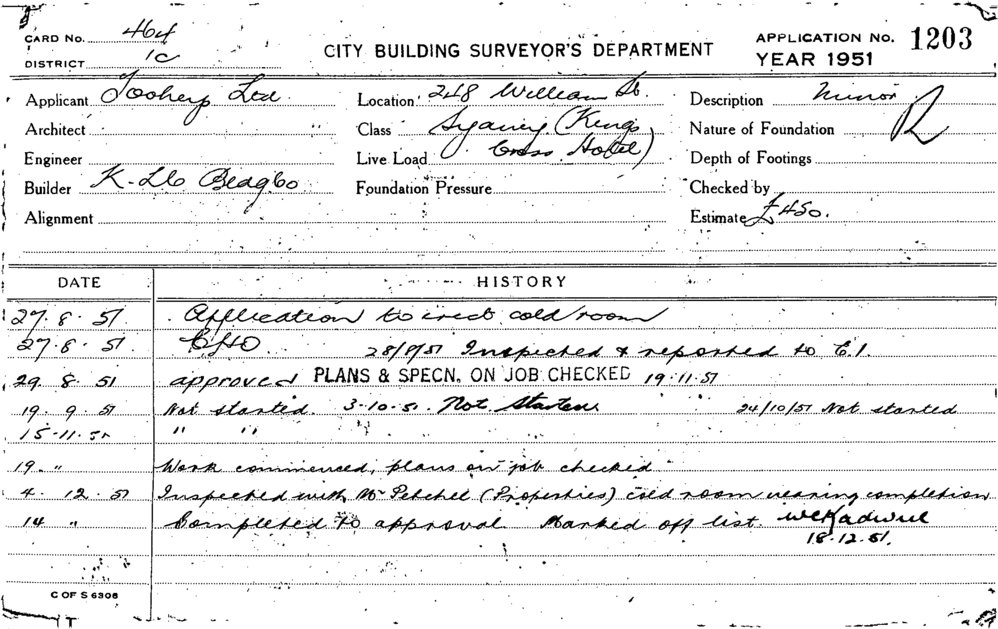 CARD No. 464
DISTRICT 1c
CITY BUILDING SURVEYOR'S DEPARTMENT
APPLICATION No. 1203
YEAR 1951
Applicant Tooheys Ltd.
Location 248 William St.
Description Minor R
Architect
Class Sydney (Kings
Nature of Foundation
Engineer
Live Load Cross Hotel)
Depth of Footings
Builder
Foundation Pressure
Checked by
Alignment
Estimate £450.
DATE HISTORY
27.8.51 Application to erect cold room
27.8.51 28/8/51 Inspected & reported to C.I.
29.8.51 approved PLANS & SPECN. ON JOB CHECKED 19.11.51
19.9.51 Not started. 3-10-51. Not Started 24/10/51 Not started
15.11.51 " "
19 " Work commenced, plans on job checked
4.12.51 Inspected with Mr Petchel (Properties) cold room nearing completion
14 " Completed to approval. Marked off list.
18.12.51.
C OF S 6306